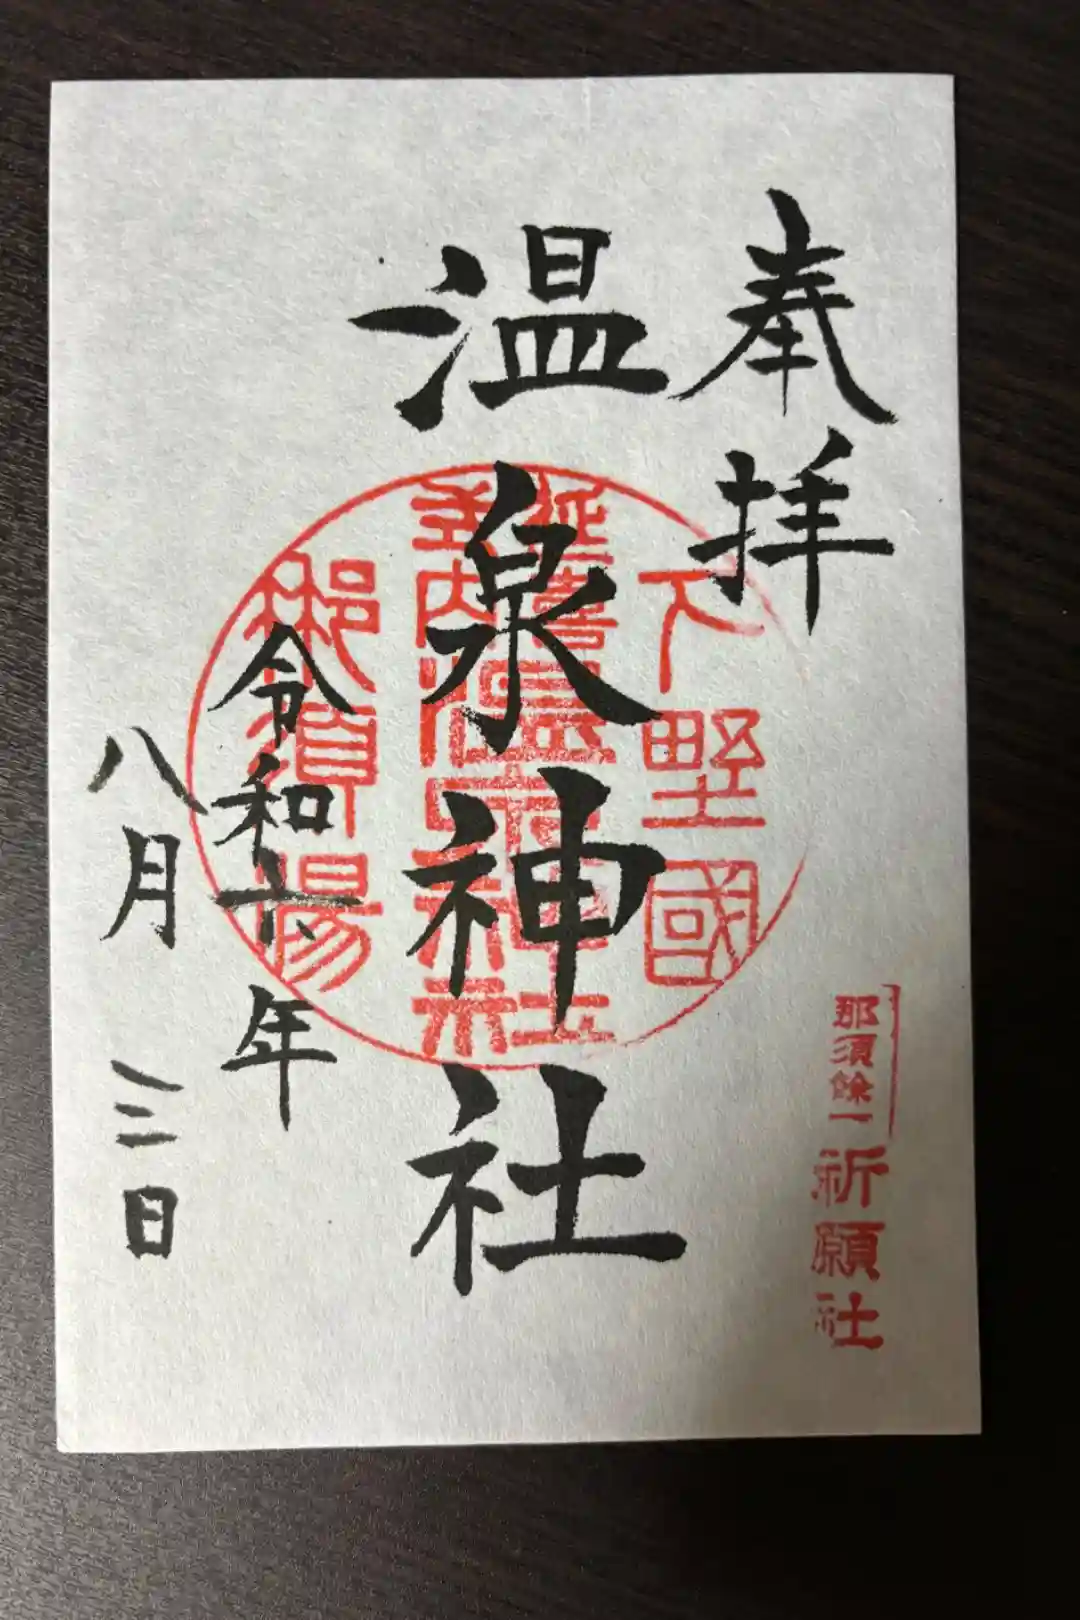 奉拝
温泉神社
令和六年
八月三日
下野國
延喜温泉神社
式内
那須湯
那須餘一
祈願社